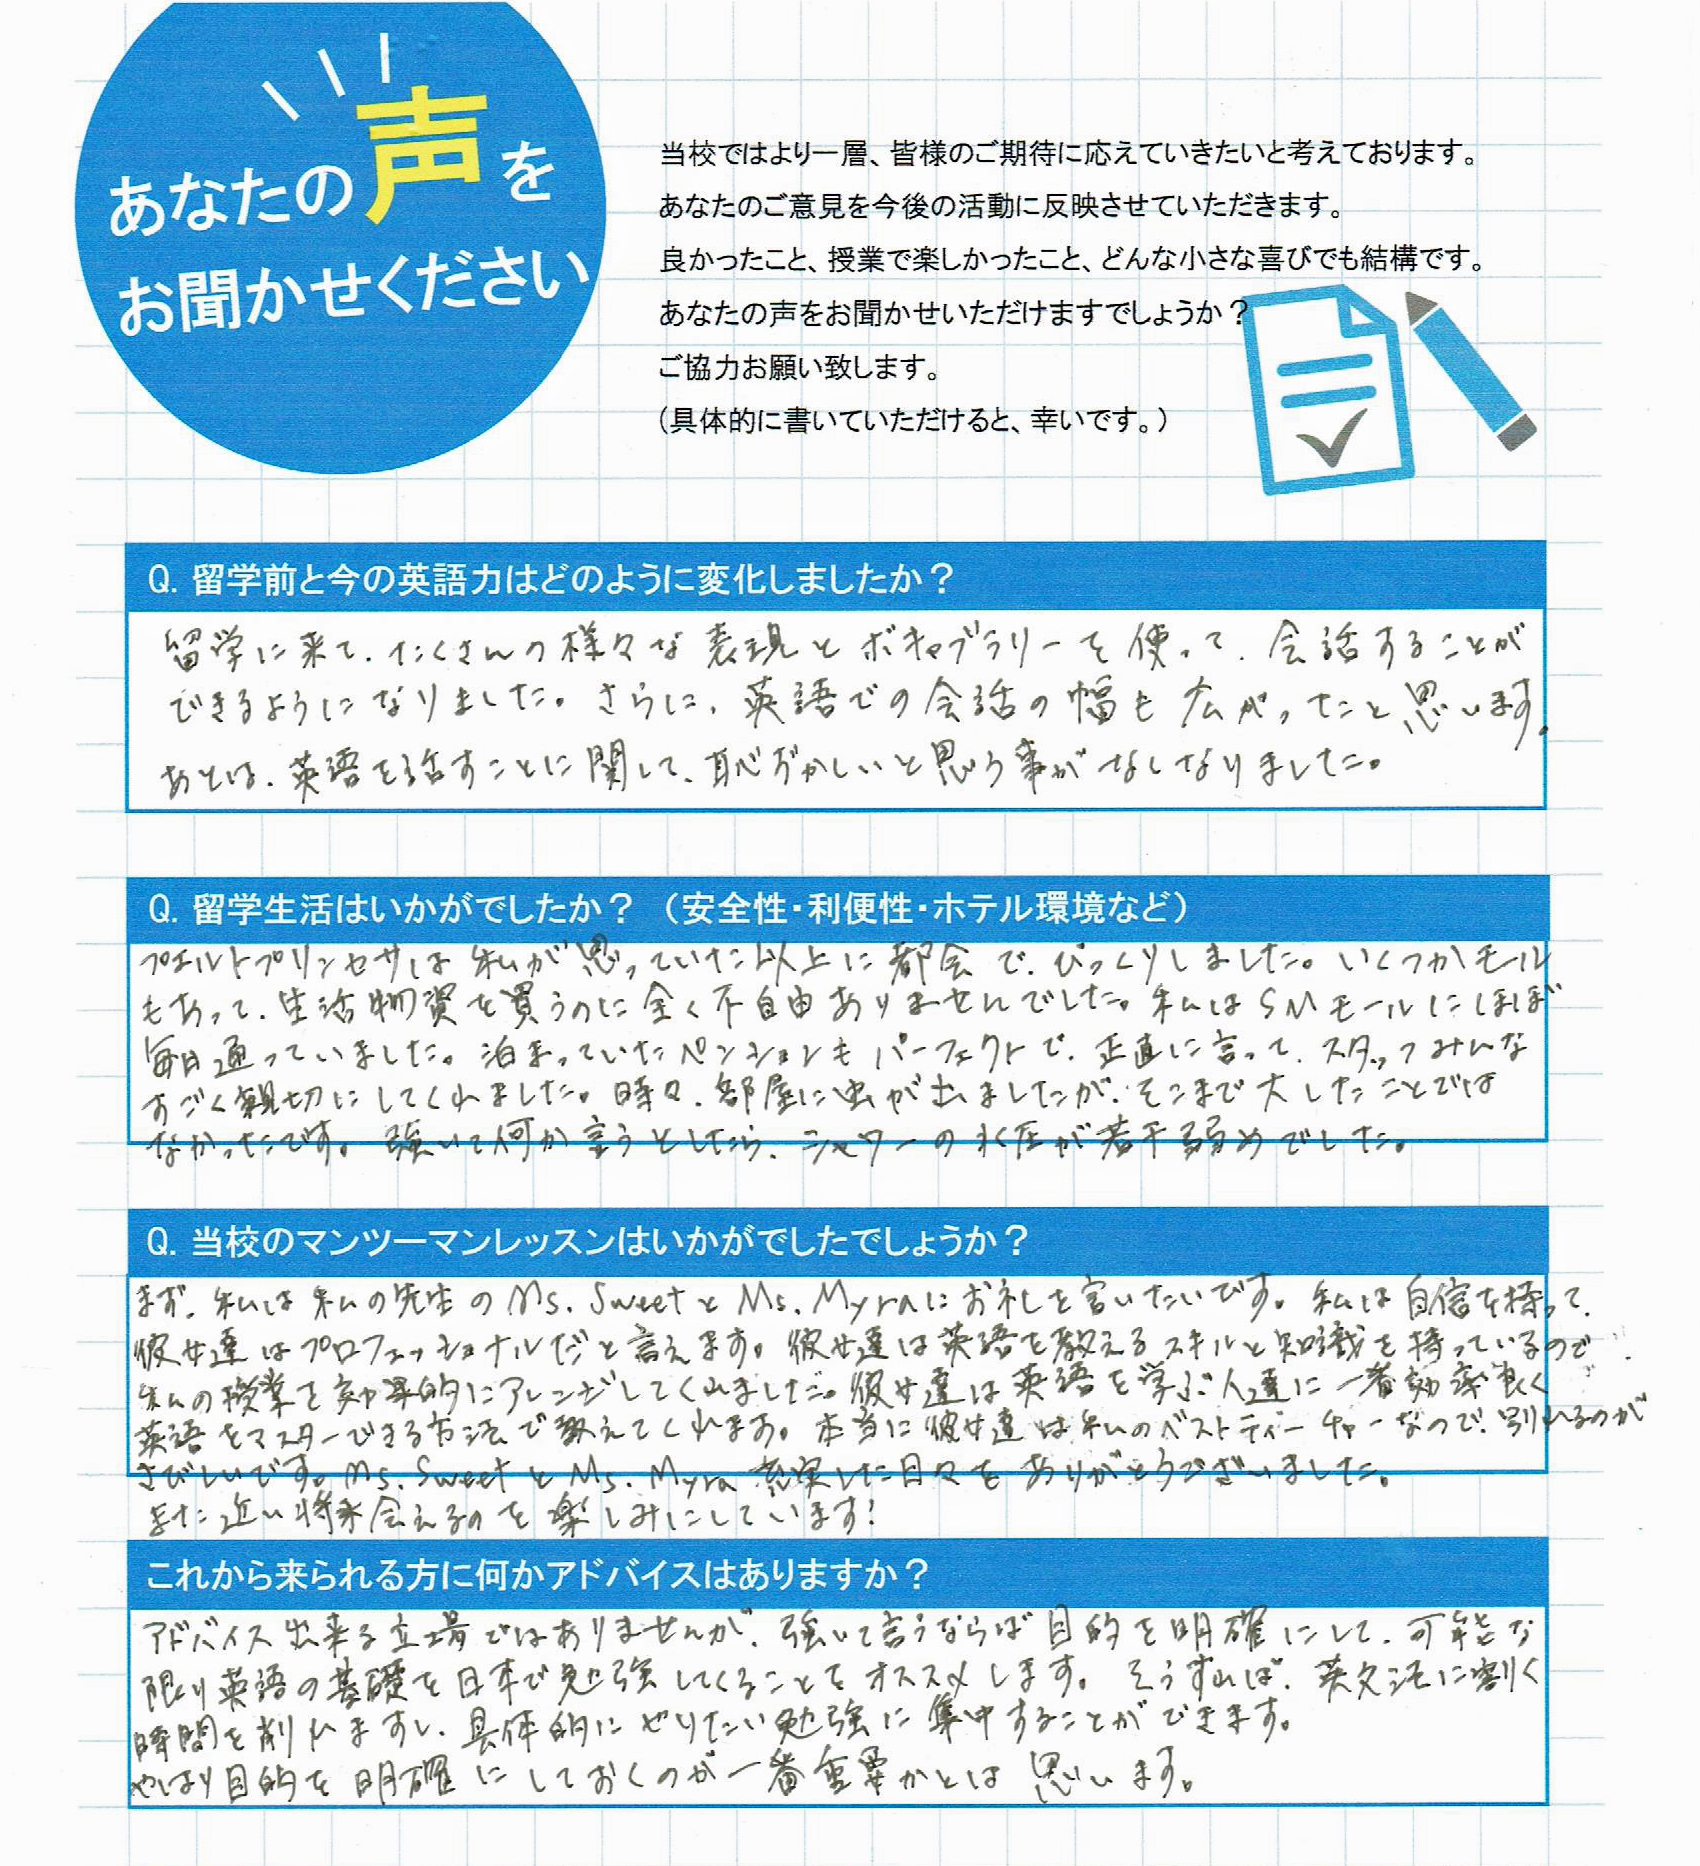 あなたの声を
お聞かせください
当校ではより一層、皆様のご期待に応えていきたいと考えております。
あなたのご意見を今後の活動に反映させていただきます。
良かったこと、授業で楽しかったこと、どんな小さな喜びでも結構です。
あなたの声をお聞かせいただけますでしょうか?
ご協力お願い致します。
(具体的に書いていただけると、幸いです。)
Q. 留学前と今の英語力はどのように変化しましたか?
留学に来て、たくさんの様々な表現とボキャブラリーを使って、会話することが
できるようになりました。さらに、英語での会話の幅も広がったと思います。
あとは、英語を話すことに関して、恥ずかしいと思う事がなしなりました。
Q. 留学生活はいかがでしたか? (安全性・利便性・ホテル環境など)
プエルトプリンセサは私が思っていた以上に都会で、びっくりしました。いくつかモール
もあって、生活物資を買うのに全く不自由ありませんでした。私はSMモールにほぼ
毎日通っていました。泊まっていたペンションもパーフェクトで、正直に言って、スタッフみんな
すごく親切にしてくれました。時々、部屋に虫が出ましたが、そこまで大したことでは
なかったです。強いて何か言うとしたら、シャワーの水圧が若干弱めでした。
Q. 当校のマンツーマンレッスンはいかがでしたでしょうか?
まず、私は私の先生のMs. SweetとMs. Myraにお礼を言いたいです。私は自信を持って、
彼女達はプロフェッショナルだと言えます。彼女達は英語を教えるスキルと知識を持っているので、
私の授業を効果的にアレンジしてくれました。彼女達は英語を学ぶ人達に一番効率良く
英語をマスターできる方法で教えてくれます。本当に彼女達は私のベストティーチャーなので、別れるのが
さびしいです。Ms. SweetとMs. Myra 充実した日々をありがとうございました。
また近い将来会えるのを楽しみにしています!
これから来られる方に何かアドバイスはありますか?
アドバイス出来る立場ではありませんが、強いて言うならば目的を明確にして、可能な
限り英語の基礎を日本で勉強してくることをオススメします。そうすれば、英文法に割く
時間を削れますし、具体的にやりたい勉強に集中することができます。
やはり目的を明確にしておくのが一番重要かとは思います。